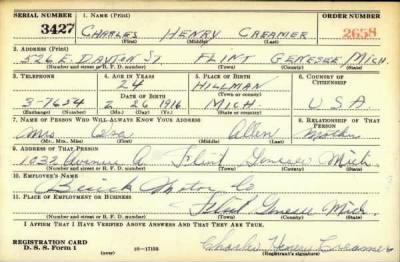 SERIAL NUMBER 1. NAME (Print) ORDER NUMBER
3427 CHARLES HENRY CREAMER 2658
(First) (Middle) (Last)
2. ADDRESS (Print)
526 E. DAYTON ST. FLINT GENESEE MICH.
(Number and street or R. F. D. number) (Town) (County) (State)
3. TELEPHONE 4. AGE IN YEARS 5. PLACE OF BIRTH 6. COUNTRY OF CITIZENSHIP
24 HILLMAN
DATE OF BIRTH
3-7654 2 26 1916 MICH. U.S.A.
(Exchange) (Number) (Mo.) (Day) (Yr.) (State or country)
7. NAME OF PERSON WHO WILL ALWAYS KNOW YOUR ADDRESS 8. RELATIONSHIP OF THAT PERSON
Mrs Allen Mother
(Mr., Mrs., Miss) (First) (Middle) (Last)
9. ADDRESS OF THAT PERSON
1032 Avenue A Flint Genesee Mich.
(Number and street or R. F. D. number) (Town) (County) (State)
10. EMPLOYER'S NAME
Buick Motor Co
11. PLACE OF EMPLOYMENT OR BUSINESS
Flint Genesee Mich.
(Number and street or R. F. D. number) (Town) (County) (State)
I AFFIRM THAT I HAVE VERIFIED ABOVE ANSWERS AND THAT THEY ARE TRUE.
REGISTRATION CARD
D. S. S. Form 1 (over) 16-17105 Charles Henry Creamer
(Registrant's signature)